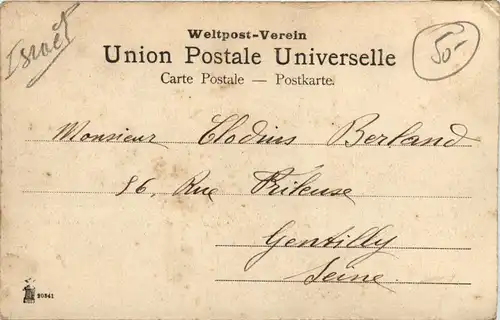 Israël
50-
Weltpost-Verein
Union Postale Universelle
Carte Postale — Postkarte.
Monsieur Clodius Berland
86, Rue Frileuse
Gentilly
Seine.
20841